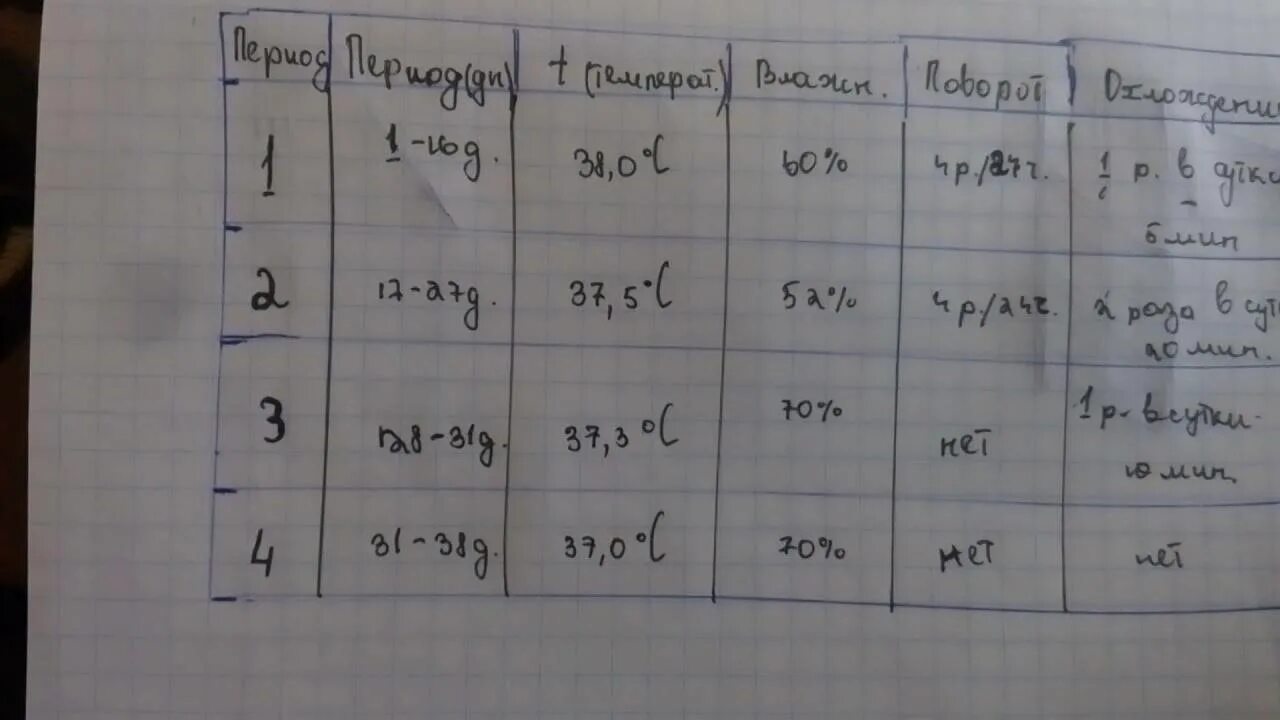 Период Период(дн) t (температ.) Влажн. Поворот Охлаждени
1 1-16д. 38,0°C 60% 4р./24ч. 1 р. в сутк
- 5 мин
2 17-27д. 37,5°C 52% 4р./24ч. 2 раза в сут
20 мин.
3 28-31д. 37,3°C 70% нет 1 р. в сутки-
10 мин.
4 31-38д. 37,0°C 70% нет нет